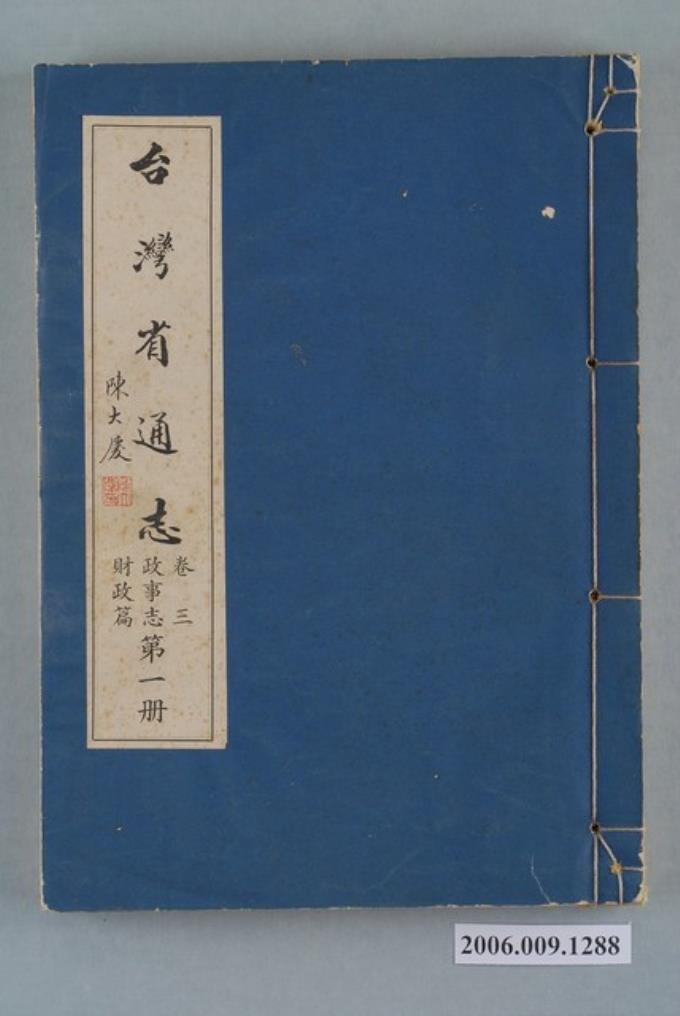 台灣省通志
卷三
政事志
財政篇
第一册
陳大慶
2006.009.1288